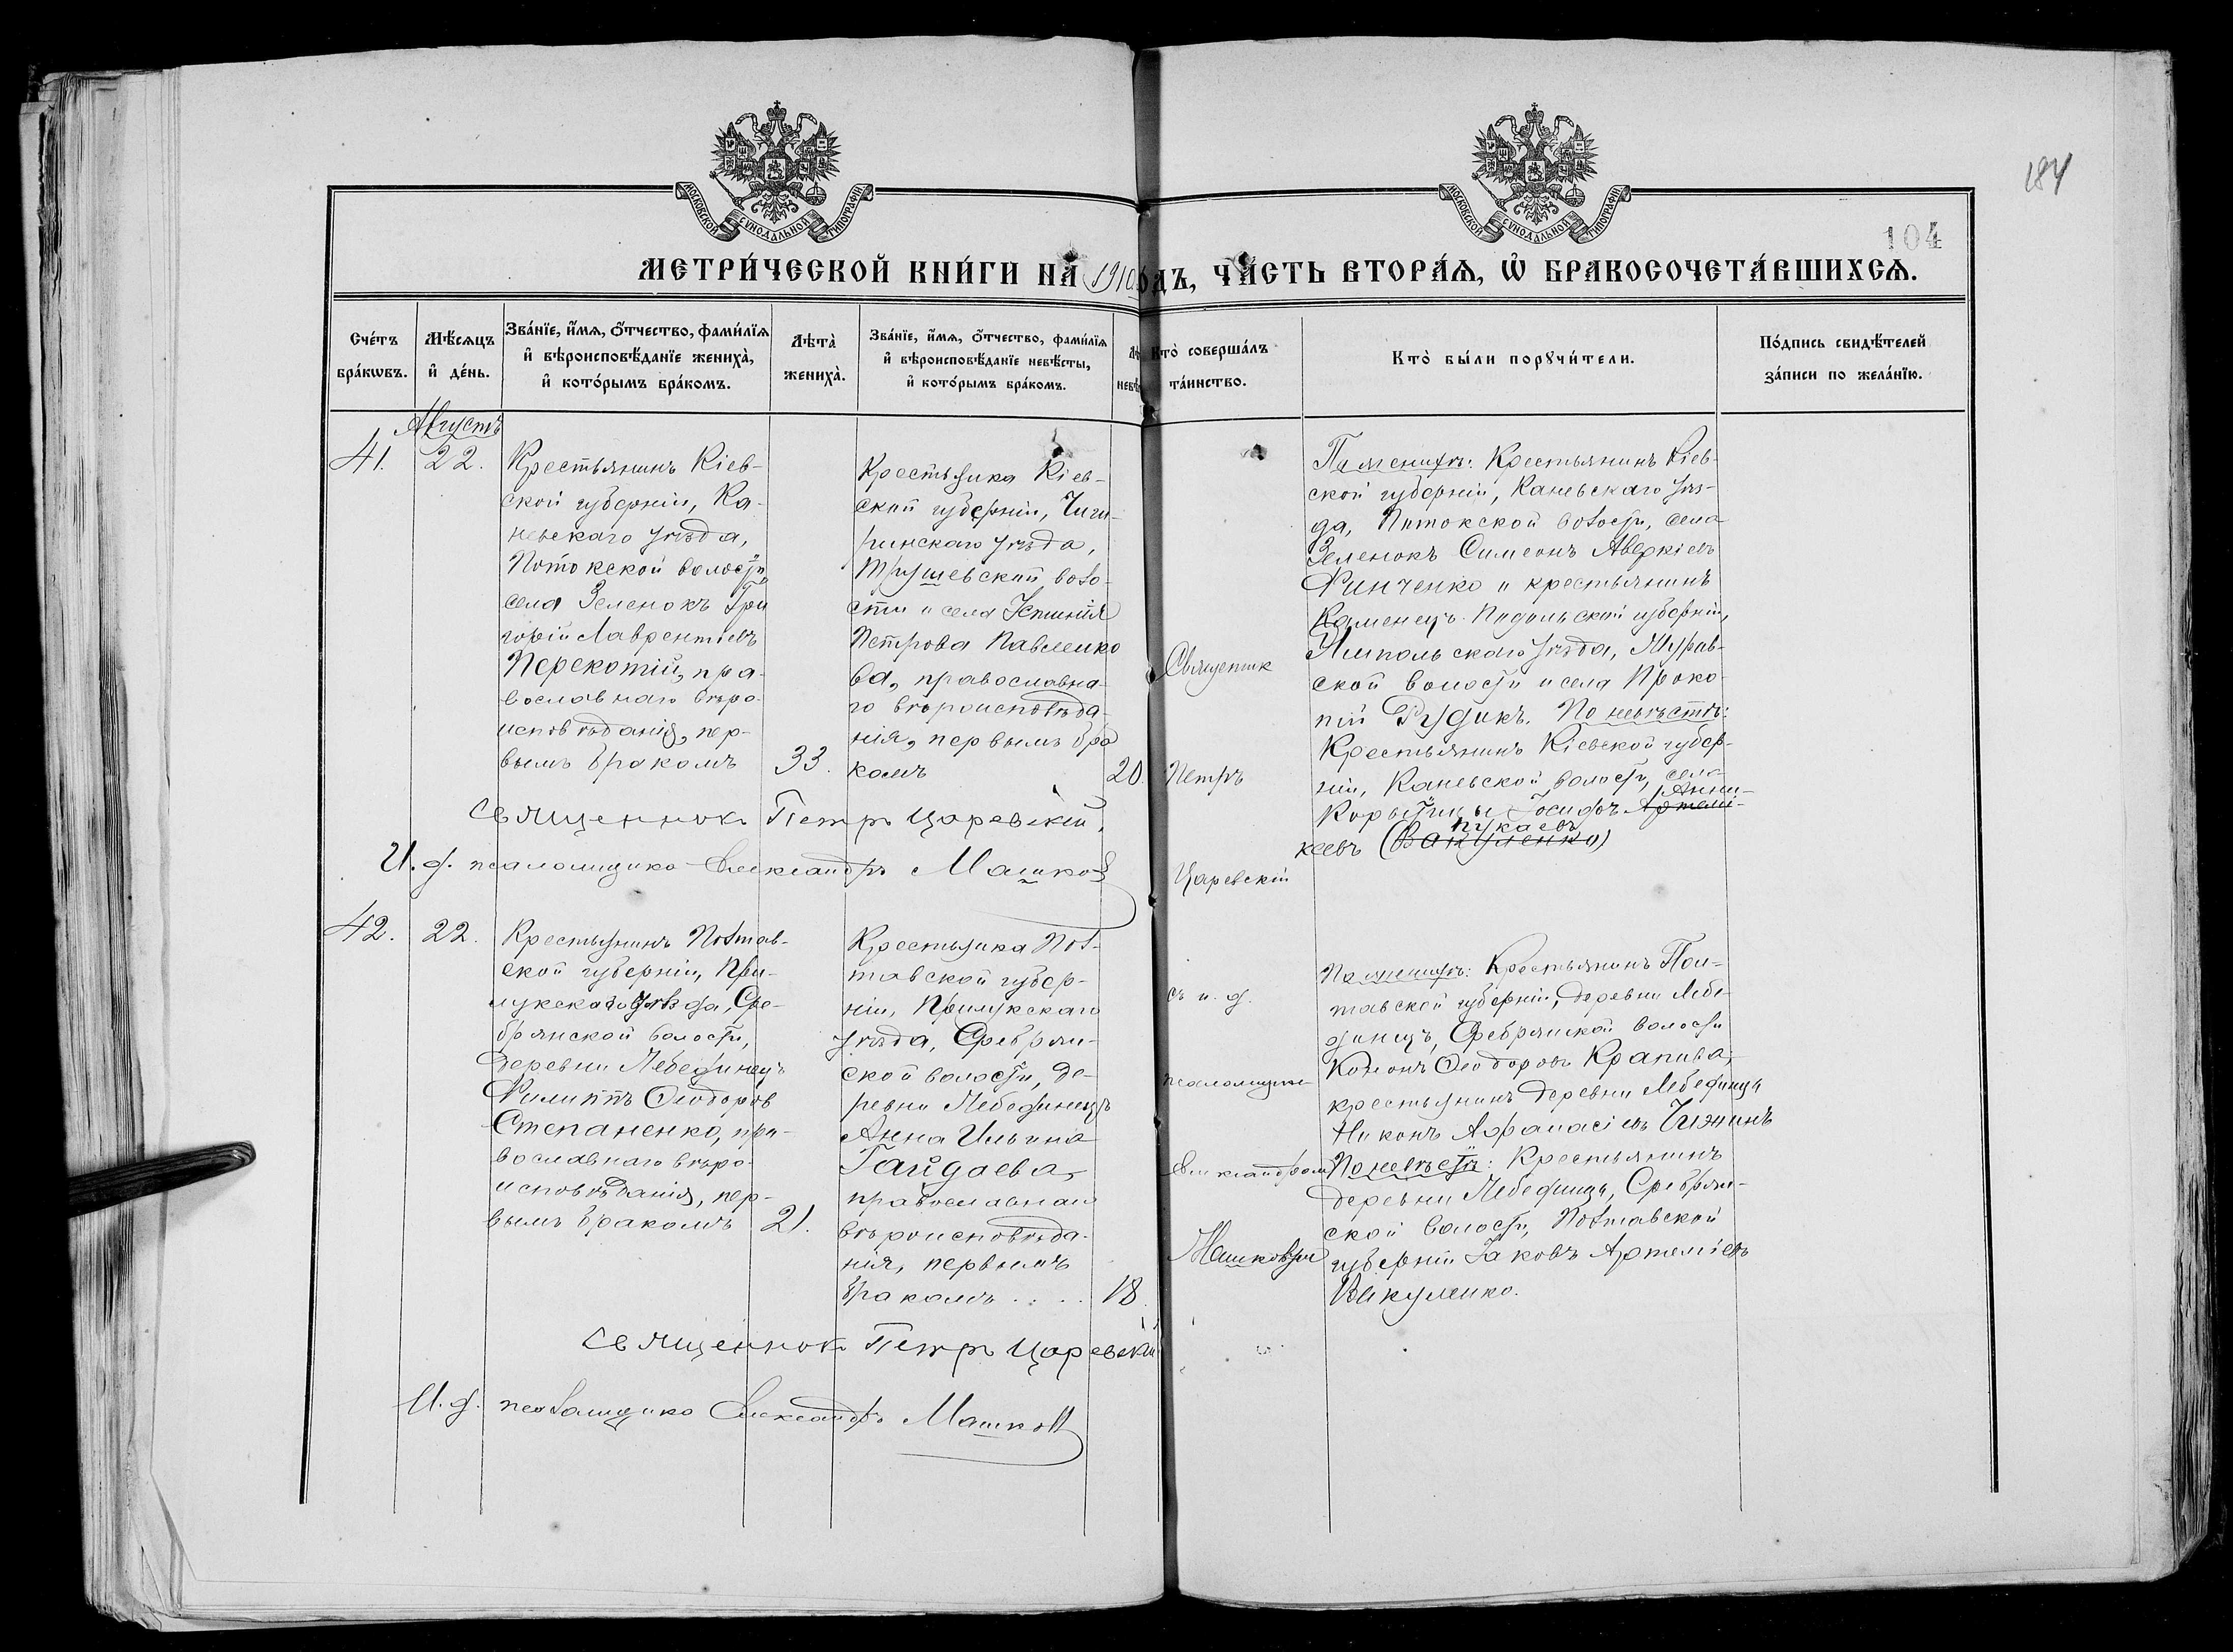 184
104
МОСКОВСКОЙ СѴНОДАЛЬНОЙ ТИПОГРАФІИ
МОСКОВСКОЙ СѴНОДАЛЬНОЙ ТИПОГРАФІИ
МЕТРИ́ЧЕСКОЙ КНИ́ГИ НА́ 1910 ГОДЪ, ЧА́СТЬ ВТОРА́Я, Ѡ БРАКОСОЧЕТА́ВШИХСЯ.
Сче́тъ бра́кωвъ.
Мѣ́сяцъ и҆ де́нь.
Зва́нїе, и҆́мя, ѻ҆́тчество, фами́лїя
и҆ вѣроисповѣ́данїе жениха̀,
и҆ кото́рымъ бра́комъ.
Лѣта̀ жениха̀.
Зва́нїе, и҆́мя, ѻ҆́тчество, фами́лїя
и҆ вѣроисповѣ́данїе невѣ́сты,
и҆ кото́рымъ бра́комъ.
Кто̀ соверша́лъ
та́инство.
Кто̀ бы́ли порꙋчи́тели.
По́дпись свидѣ́телей
за́писи по жела́нїю.
Августъ
41.
22.
Крестьянинъ Кіев-
ской губерніи, Ка-
невскаго уѣзда,
Потокской волости,
села Зеленокъ Гри
горій Лаврентіевъ
Перекотій, пра-
вославнаго вѣро-
исповѣданія, пер-
вымъ бракомъ
33.
Крестьянка Кіев-
ской губерніи, Чиги-
ринскаго уѣзда,
Трушевской воло-
сти и села
Петрова Павленко
ва, православна-
го вѣроисповѣда-
нія, первымъ бра
комъ
20.
Священник
Петръ
Царевскій
съ и. д.
псаломщика
Александром
Машковым
По женихѣ: Крестьянинъ Кіев-
ской губерніи, Каневскаго уѣз-
да, Потокской волости, села
Зеленокъ Симеонъ Аверкіевъ
Финченко и крестьянинъ
Каменецъ-Подольской губерніи,
Ямпольскаго уѣзда, Мурав-
ской волости и села Проко-
пій Рудикъ. По невѣстѣ:
Крестьянинъ Кіевской губер-
ніи, Каневской волости, села
Іосифъ Анни-
Артемі-
кеевъ (Вакуленко)
Пукаевъ
Священник Петръ Царевскій.
И. д. псаломщика Александръ Машковъ
42.
22.
Крестьянинъ Полтав-
ской губерніи, При-
лукскаго уѣзда, Сре-
брянской волости,
деревни Лебединецъ
Филиппъ Ѳеодоров
Степаненко, пра-
вославнаго вѣро-
исповѣданія, пер-
вымъ бракомъ
21.
Крестьянка Пол-
тавской губер-
ніи, Прилукскаго
уѣзда, Сребрян-
ской волости, де-
ревни Лебединецъ
Анна Ильина
Гайдаева,
православнаго
вѣроисповѣда-
нія, первымъ
бракомъ . . . .
18.
По женихѣ: Крестьянинъ Пол-
тавской губерніи, деревни Лебе-
динецъ, Сребрянской волости
Кононъ Ѳеодоровъ Крапива,
крестьянинъ деревни Лебединца
Никонъ Аѳанасіевъ Чижикъ
По невѣстѣ: Крестьянинъ
деревни Лебединца, Сребрян-
ской волости, Полтавской
губерніи Іаковъ Артеміевъ
Вакуленко.
Священник Петръ Царевскій
И. д. псаломщика Александръ Машковъ